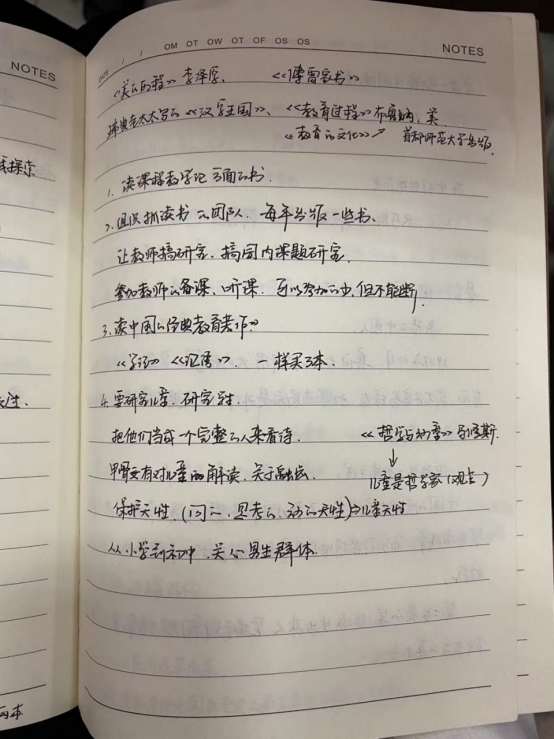 NOTES
DATE / /
MO TU WE TH FR SA SU
NOTES
《美的历程》李泽厚、 《傅雷家书》
瑞典老太太写的《汉字王国》、《教育过程》布鲁纳,美.
《教育的文化》↗ 首都师范大学出版
1. 读课程教学论方面的书.
2. 组织抓读书的团队, 每年出版一些书.
让教师搞研究, 搞国内课题研究.
参加教师的备课、听课. 可以参加的少,但不能断.
3. 读中国的经典教育著作?
《学记》《论语》. 一样买3本.
4. 要研究儿童,研究学生.
把他们当成一个完整的人来看待. 《哲学与幼童》马修斯.
↓
儿童是哲学家(观点)
甲骨文有对儿童的解读,关于
保护天性,(问的、思考的、动的天性)⇒儿童天性
从小学到初中,关心男生群体.
探索
两本